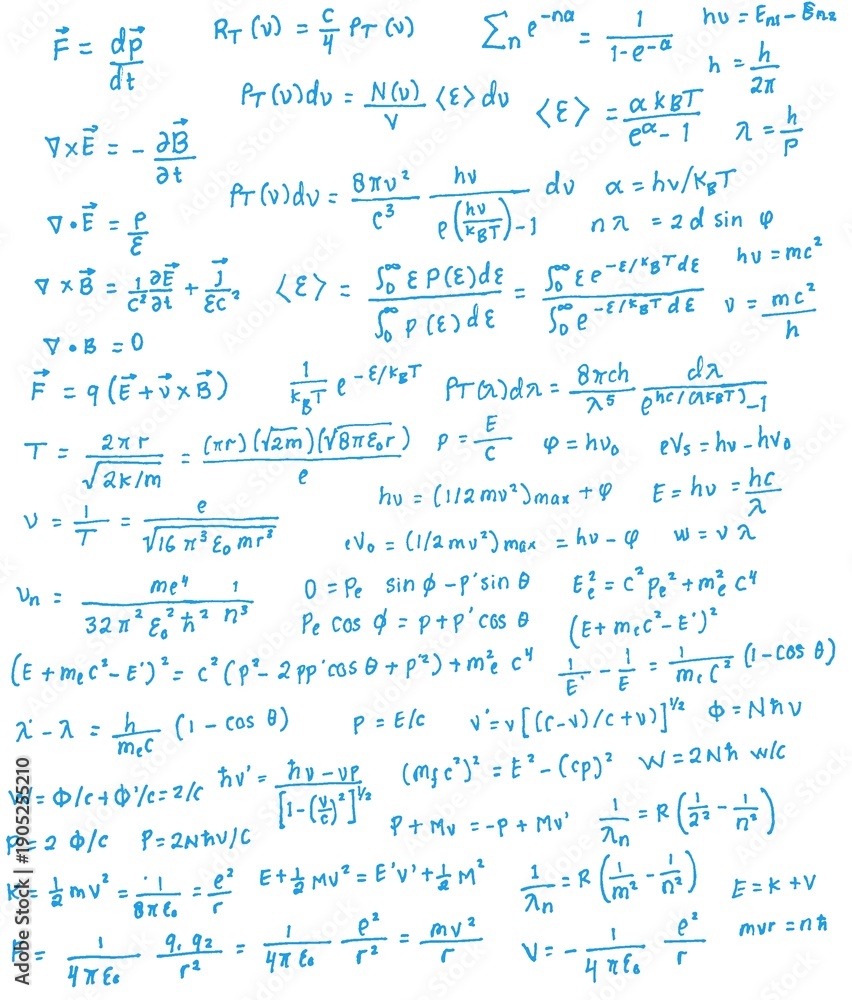 F⃗ = dp⃗/dt
R_T(ν) = c/4 ρ_T(ν)
∑_n e^{-nα} = 1/(1-e^{-α})
hν = E_{n1} - E_{n2}
ħ = h/2π
ρ_T(ν)dν = N(ν)/V <ε> dν
<ε> = αk_BT/(e^α - 1)
λ = h/p
∇×E⃗ = -∂B⃗/∂t
ρ_T(ν)dν = 8πν²/c³ hν/(e^(hν/k_BT)-1) dν
α = hν/k_BT
∇•E⃗ = ρ/ε
nλ = 2d sin φ
∇×B⃗ = 1/c² ∂E⃗/∂t + J⃗/εc²
<ε> = ∫₀^∞ ε P(ε)dε / ∫₀^∞ P(ε)dε = ∫₀^∞ εe^{-ε/k_BT}dε / ∫₀^∞ e^{-ε/k_BT}dε
hν = mc²
ν = mc²/h
∇•B = 0
F⃗ = q(E⃗+v⃗×B⃗)
1/k_BT e^{-ε/k_BT}
ρ_T(λ)dλ = 8πch/λ⁵ dλ/(e^{hc/(λk_BT)}-1)
T = 2πr/√(2k/m) = (πr)(√2m)(√8πε₀r)/e
p = E/c
φ = hν₀
eV_s = hν - hν₀
hν = (1/2mv²)max + φ
E = hν = hc/λ
ν = 1/T = e/√(16π³ε₀mr³)
eV₀ = (1/2mv²)max = hν - φ
w = νλ
ν_n = me⁴/(32π²ε₀²ħ²) 1/n³
0 = P_e sin φ - p'sin θ
E_e² = c²p_e² + m_e²c⁴
P_e cos φ = p+p'cos θ
(E+m_ec²-E')²
(E+m_ec²-E')² = c²(p²-2pp'cos θ+p'²)+m_e²c⁴
1/E' - 1/E = 1/(m_ec²) (1-cos θ)
λ'-λ = h/(m_ec) (1-cos θ)
P = E/c
ν'=ν[(c-v)/c+v)]^{1/2}
Φ=Nħν
W=Φ/c+Φ'/c=2/c
ħν' = (ħν-vp)/[1-(v/c)²]^{1/2}
(m_fc²)² = E²-(cp)²
W=2Nħ w/c
P=2 Φ/c
P=2Nħν/c
P+Mv = -P+Mv'
1/λ_n = R(1/2² - 1/n²)
K=1/2 mv² = 1/8πε₀ = e²/r
E+1/2Mv² = E'v'+1/2M²
1/λ_n = R(1/m² - 1/n²)
E=K+V
= 1/4πε₀ q₁q₂/r² = 1/4πε₀ e²/r² = mv²/r
V = -1/4πε₀ e²/r
mvr = nħ
Adobe Stock | #1905255210